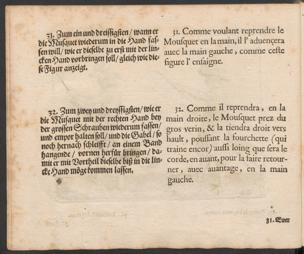 31. Zum ein und dreissigsten / wann er
die Musquet wiederum in die Hand fas-
sen will / wie er dieselbe zu erst mit der lin-
cken Hand vorbringen soll / gleich wie die-
se Figur anzeigt.
32. Zum zwey und dreyssigsten / wie er
die Musquet mit der rechten Hand bey
der grossen Schrauben wiederum fassen /
und empor halten soll / und die Gabel / so
noch hernach schleifft / an einem Band
hangende / vornen herfür bringen / da-
mit er mit Vortheil dieselbe biß in die lin-
cke Hand möge kommen lassen.
31. Comme voulant reprendre le
Mousquet en la main, il l'aduencera
avec la main gauche, comme ceste
figure l'ensaigne.
32. Comme il reprendra, en la
main droite, le Mousquet prez du
gros verin, & la tiendra droit vers
hault, poussant la fourchette (qui
traine encor) aussi loing que sera le
corde, en auant, pour la faire retour-
ner, avec auantage, en la main
gauche.